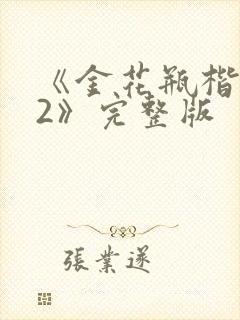 《金花瓶楷
2》完整版
张業遂